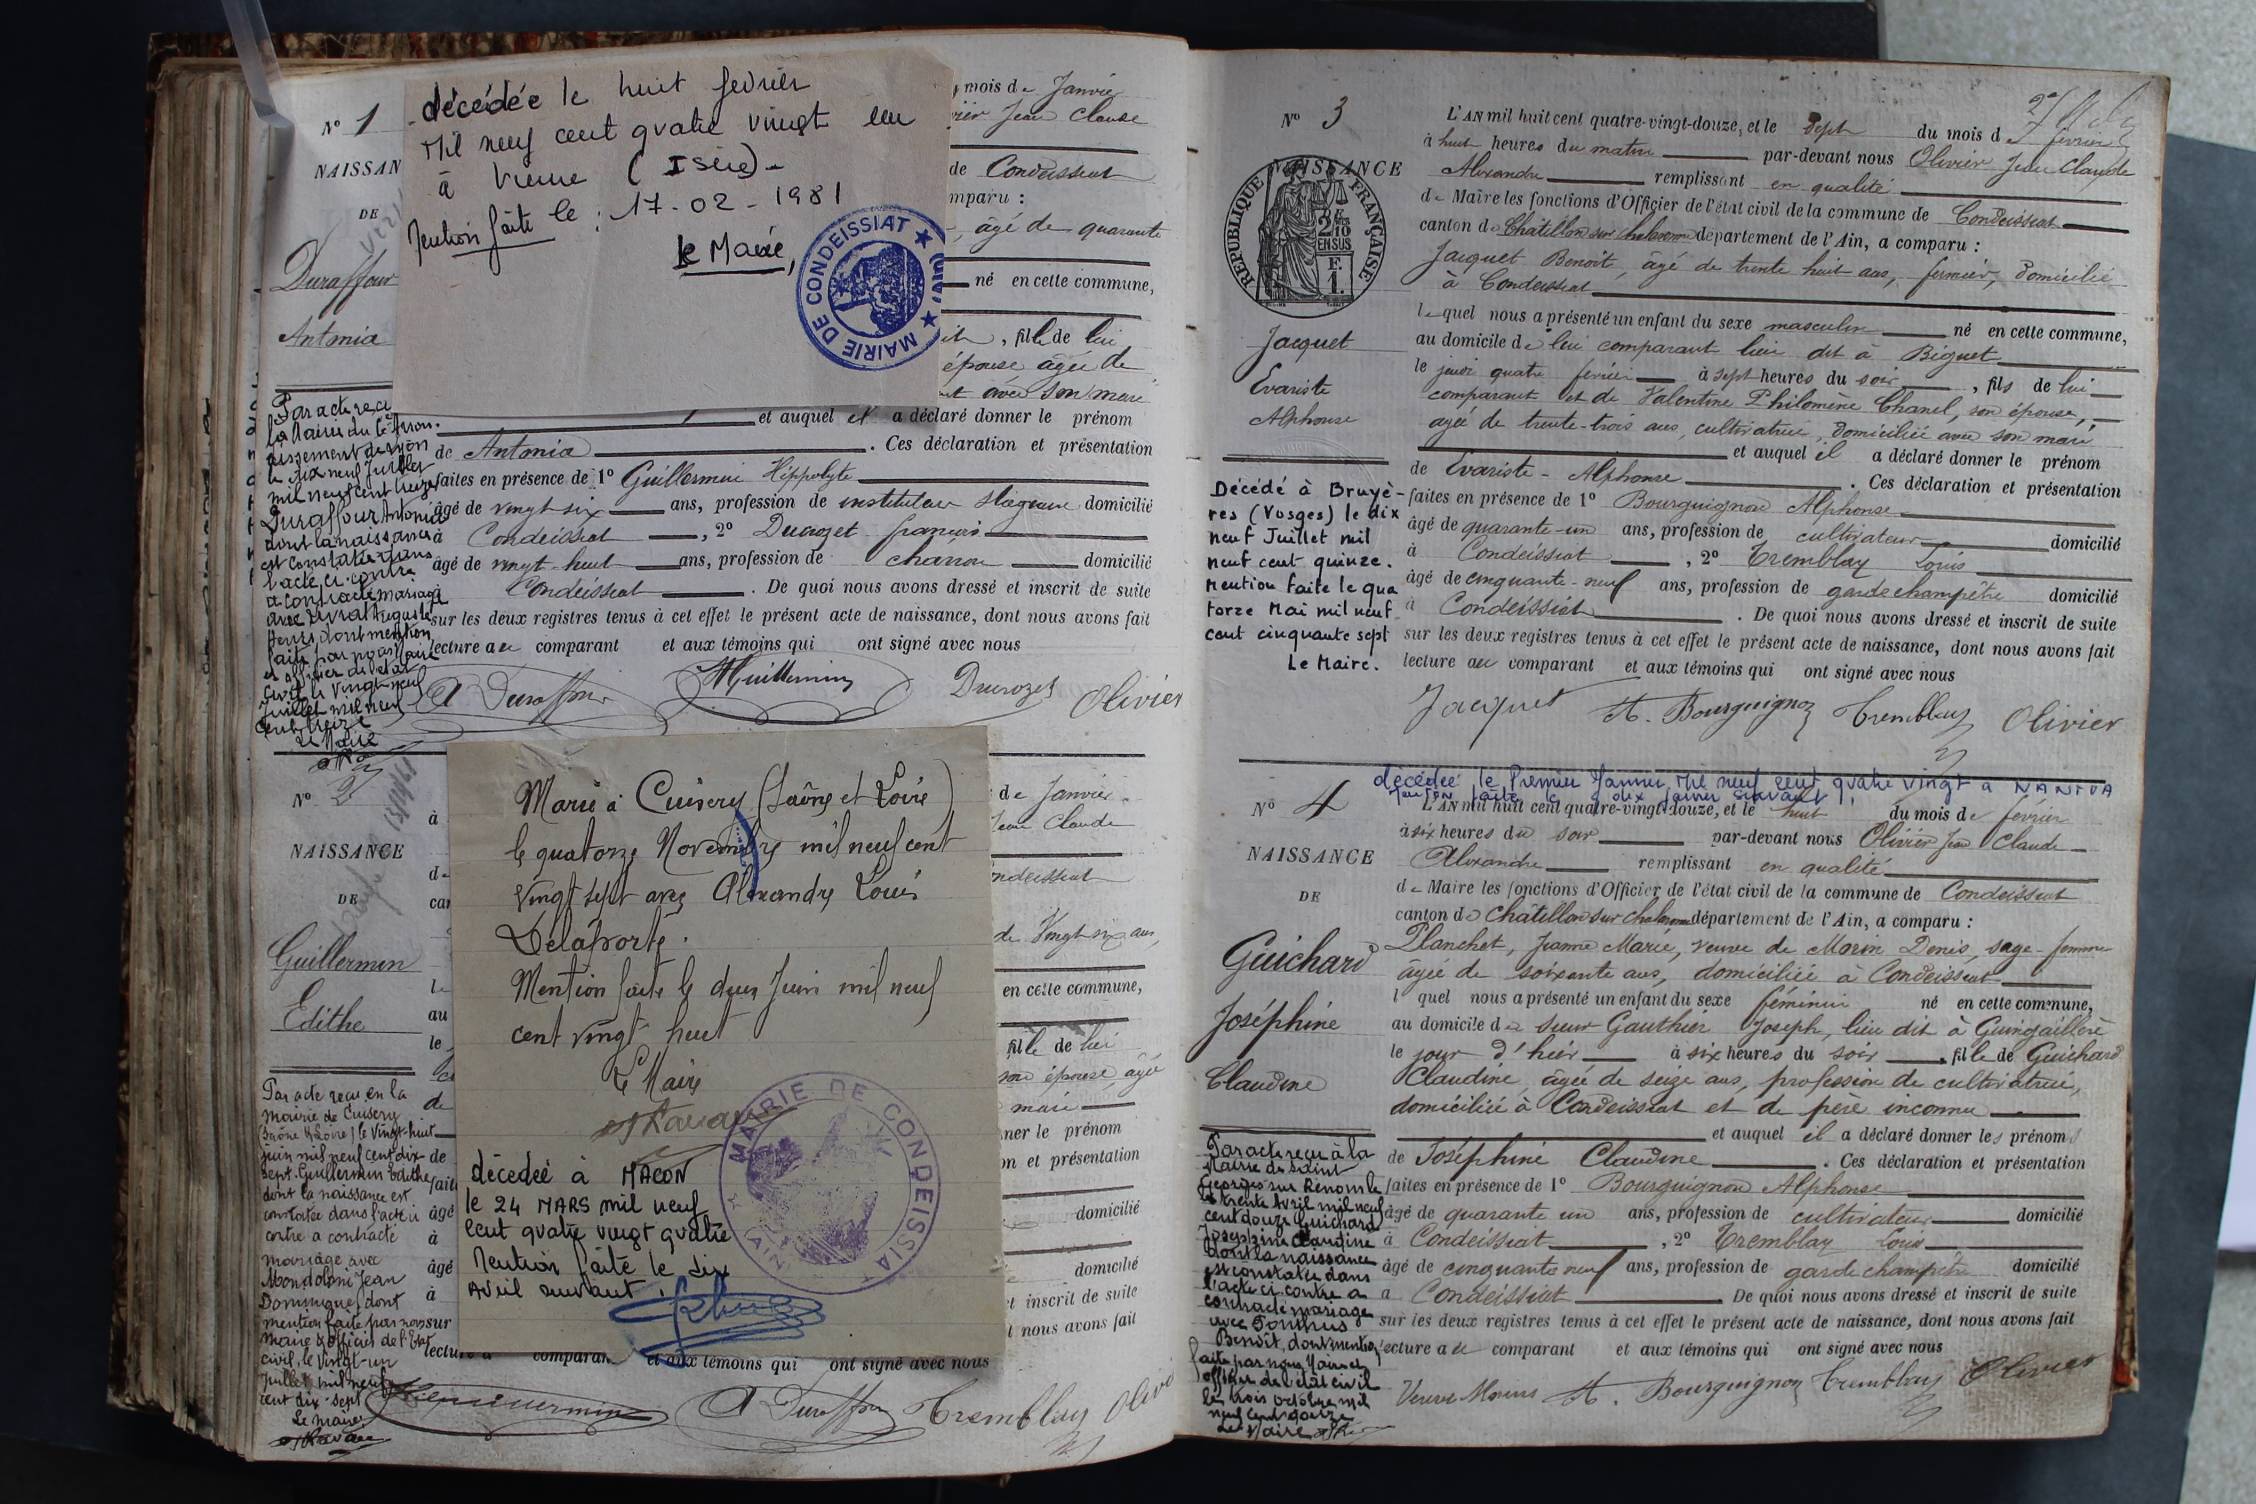 décédée le huit fevrier
Mil neuf cent quatre vingt un
à Vienne (Isère)-
Mention faite le : 17-02-1981
le Maire,
MAIRIE DE CONDEISSIAT ★ (AIN) ★
N° 1
NAISSAN
DE
Duraffour
Antonia
mois de Janvier
Jean Claude
de Condeissiat
mparu :
, âgé de quarante
né en cette commune,
, fille de lui
épouse âgée de
avec son mari
et auquel il a déclaré donner le prénom
de Antonia . Ces déclaration et présentation
faites en présence de 1° Guillermin Hippolyte
âgé de vingt-six ans, profession de instituteur stagiaire domicilié
à Condeissiat , 2° Ducrozet françois
âgé de vingt-huit ans, profession de charron domicilié
Condeissiat . De quoi nous avons dressé et inscrit de suite
sur les deux registres tenus à cet effet le présent acte de naissance, dont nous avons fait
lecture au comparant et aux témoins qui ont signé avec nous
A Duraffour Guillermin Ducrozet Olivier
Par acte reçu
la Mairie du 6e Arron-
dissement de Lyon
le dix neuf Juillet
mil neuf cent treize
Duraffour Antonia
dont la naissance
est constatée dans
l'acte ci-contre
a contracté mariage
avec Auguste
dont mention
faite par nous Maire
et officier de l'état
civil le vingt-neuf
Juillet mil neuf
cent treize
Le Maire
N° 2
NAISSANCE
DE
Guillermin
Edithe
de Janvier
Jean Claude
Condeissiat
de Vingt six ans,
en cette commune,
fille de lui
son épouse âgée
mari
ner le prénom
on et présentation
domicilié
domicilié
t inscrit de suite
t nous avons fait
Marié à Cuisery (Saône et Loire)
le quatorze Novembre mil neuf cent
vingt sept avec Alexandre Louis
Delaporte.
Mention faite le deux Juin mil neuf
cent vingt huit
Le Maire
MAIRIE DE CONDEISSIAT (AIN)
décédeé à MACON
le 24 MARS mil neuf
cent quatre vingt quatre
Mention faite le dix
Avril suivant.
Par acte reçu en la
mairie de Cuisery
(Saône & Loire) le Vingt-huit
juin mil neuf cent dix
sept. Guillermin Edithe
dont la naissance est
constatée dans l'acte ci
contre a contracté
mariage avec
Mondoloni Jean
Dominique, dont
mention faite par nous
maire & officier de l'Etat
civil, le Vingt-un
Juillet mil neuf
cent dix-sept
Le maire
lecture a comparan et aux témoins qui ont signé avec nous
Guillermin A Duraffour Tremblay Olivi
N° 3
NAISSANCE
RÉPUBLIQUE FRANÇAISE
2/10 EN SUS
F. 1.
Jacquet
Evariste
Alphonse
L'AN mil huit cent quatre-vingt-douze, et le Sept du mois de février
à huit heures du matin par-devant nous Olivier Jean Claude
Alexandre remplissant en qualité
de Maire les fonctions d'Officier de l'état civil de la commune de Condeissiat
canton de Châtillon sur Chalaronne département de l'Ain, a comparu :
Jacquet Benoît, âgé de trente huit ans, fermier, domicilié
à Condeissiat
lequel nous a présenté un enfant du sexe masculin né en cette commune,
au domicile de lui comparant lieu dit à Biguet
le jeudi quatre février à sept heures du soir , fils de lui
comparant et de Valentine Philomène Chanel, son épouse,
agée de trente-trois ans, cultivatrice, domiciliée avec son mari
et auquel il a déclaré donner le prénom
de Evariste - Alphonse . Ces déclaration et présentation
faites en présence de 1° Bourguignon Alphonse
âgé de quarante-un ans, profession de cultivateur domicilié
à Condeissiat , 2° Tremblay Louis
âgé de cinquante-neuf ans, profession de garde champêtre domicilié
à Condeissiat . De quoi nous avons dressé et inscrit de suite
sur les deux registres tenus à cet effet le présent acte de naissance, dont nous avons fait
lecture au comparant et aux témoins qui ont signé avec nous
Jacquet A. Bourguignon Tremblay Olivier
Décédé à Bruyè-
res (Vosges) le dix
neuf Juillet mil
neuf cent quinze.
Mention faite le qua
torze Mai mil neuf
cent cinquante sept
Le Maire.
décédée le Premier Janvier Mil neuf cent quatre vingt à NANTUA
mention faite le dix janvier suivant.
N° 4
NAISSANCE
DE
Guichard
Joséphine
Claudine
L'AN mil huit cent quatre-vingt-douze, et le huit du mois de février
à six heures du soir par-devant nous Olivier Jean Claude
Alexandre remplissant en qualité
de Maire les fonctions d'Officier de l'état civil de la commune de Condeissiat
canton de Châtillon sur Chalaronne département de l'Ain, a comparu :
Planchet, Jeanne Marie, veuve de Morin Denis, sage-femme
âgée de soixante ans, domiciliée à Condeissiat
l quel nous a présenté un enfant du sexe féminin né en cette commune,
au domicile de sieur Gauthier Joseph, lieu dit à
le jour d'hier à six heures du soir , fille de Guichard
Claudine âgée de seize ans, profession de cultivatrice,
domiciliée à Condeissiat et de père inconnu
et auquel il a déclaré donner les prénoms
de Joséphine Claudine . Ces déclaration et présentation
faites en présence de 1° Bourguignon Alphonse
âgé de quarante un ans, profession de cultivateur domicilié
à Condeissiat , 2° Tremblay Louis
âgé de cinquante neuf ans, profession de garde champêtre domicilié
à Condeissiat De quoi nous avons dressé et inscrit de suite
sur les deux registres tenus à cet effet le présent acte de naissance, dont nous avons fait
lecture a comparant et aux témoins qui ont signé avec nous
Veuve Morin A. Bourguignon Tremblay Olivier
Par acte reçu à la
Mairie de Saint
Georges sur Renom le
trente Avril mil neuf
cent douze Guichard
Joséphine Claudine
dont la naissance
est constatée dans
l'acte ci contre a
contracté mariage
avec
Benoît, dont mention
faite par nous Maire et
officier de l'état civil
le trois octobre mil
neuf cent douze
Le Maire